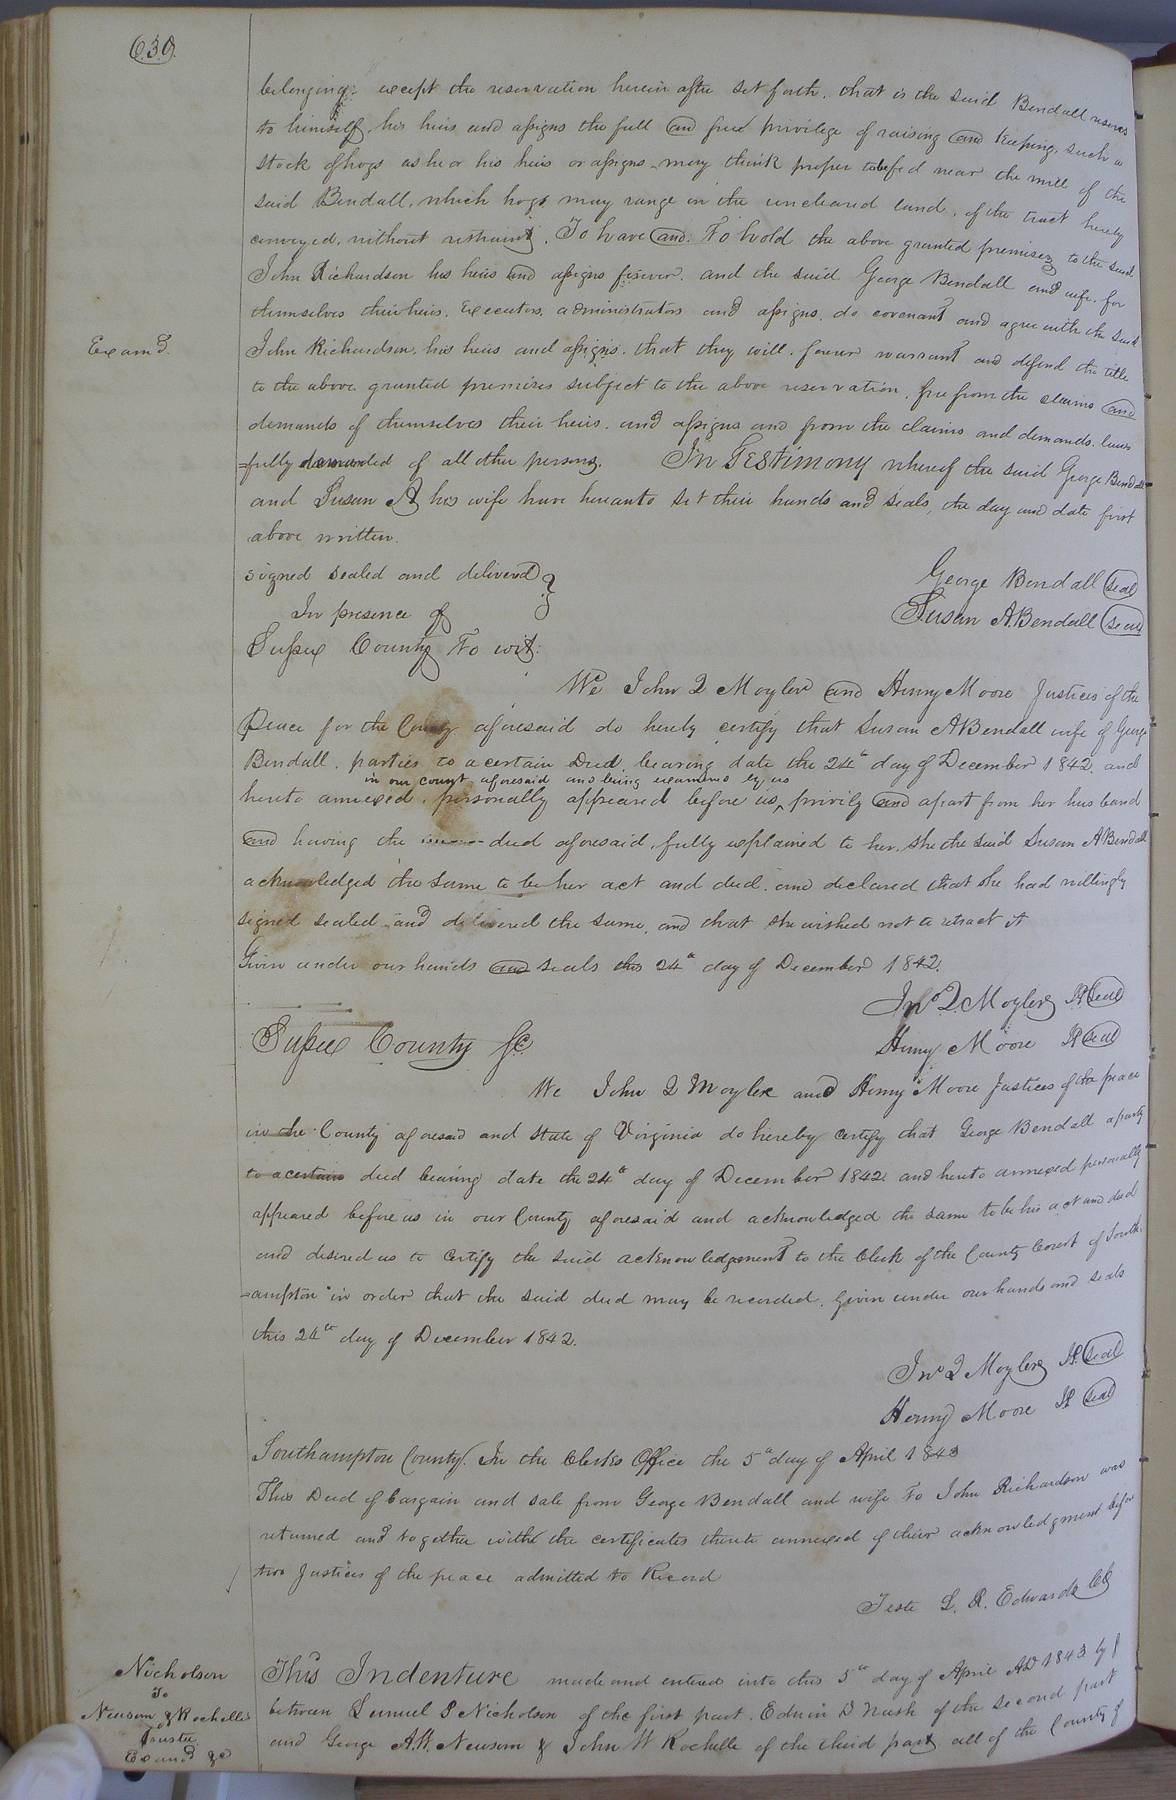 630
belonging. except the reservation herein after set forth. that is the said Bendall reserves
to himself, his heirs and assigns the full and free privilege of raising and keeping, such a
stock of hogs as he or his heirs or assigns may think proper to be fed near the mill of the
said Bendall, which hogs may range in the uncleared land, of the tract hereby
conveyed, without restraint. To have and To hold the above granted premises to the said
John Richardson his heirs and assigns forever. and the said George Bendall and wife, for
themselves their heirs, Executors, administrators and assigns, do covenant and agree with the said
Exam'd.
John Richardson, his heirs and assigns, that they will, forever warrant and defend the title
to the above granted premises subject to the above reservation, free from the claims and
demands of themselves their heirs, and assigns and from the claims and demands law
=fully demanded of all other persons. In Testimony whereof the said George Bendall
and Susan A his wife have hereunto set their hands and seals, the day and date first
above written.
signed sealed and delivered }
In presence of
George Bendall seal
Susan A. Bendall seal
Sussex County To wit:
We John Q Moyler and Henry Moore Justices of the
Peace for the County aforesaid do hereby certify that Susan A Bendall wife of George
Bendall, parties to a certain Deed bearing date the 24th day of December 1842. and
in our county aforesaid and being examined by us
hereto annexed, personally appeared before us, ^ privily and apart from her husband
and having the deed aforesaid, fully explained to her, she the said Susan A Bendall
acknowledged the same to be her act and deed, and declared that she had willingly
signed sealed and delivered the same, and that she wished not to retract it
Given under our hands and seals this 24th day of December 1842.
Jno Q. Moyler JP seal
Henry Moore JP seal
Sussex County Sc
We John Q Moyler and Henry Moore Justices of the peace
in the County aforesaid and State of Virginia do hereby certify that George Bendall a party
to a certain deed bearing date the 24th day of December 1842 and hereto annexed personally
appeared before us in our County aforesaid and acknowledged the same to be his act and deed
and desired us to certify the said acknowledgement to the Clerk of the County Court of South
=ampton in order that the said deed may be recorded. Given under our hands and seals
this 24th day of December 1842.
Jno Q Moyler JP. seal
Henry Moore JP seal
Southampton County. In the Clerks Office the 5th day of April 1843
This Deed of bargain and sale from George Bendall and wife To John Richardson was
returned and together with the certificates thereto annexed of their acknowledgment before
two Justices of the peace admitted to Record
Teste L. R. Edwards CC
Nicholson
To
Newsom & Rochelle
Trustee
Exam'd &c
This Indenture made and entered into this 5th day of April AD 1843 by &
between Lemuel P Nicholson of the first part. Edwin D Nash of the second part
and George A.W. Newsom & John W Rochelle of the third part all of the County of